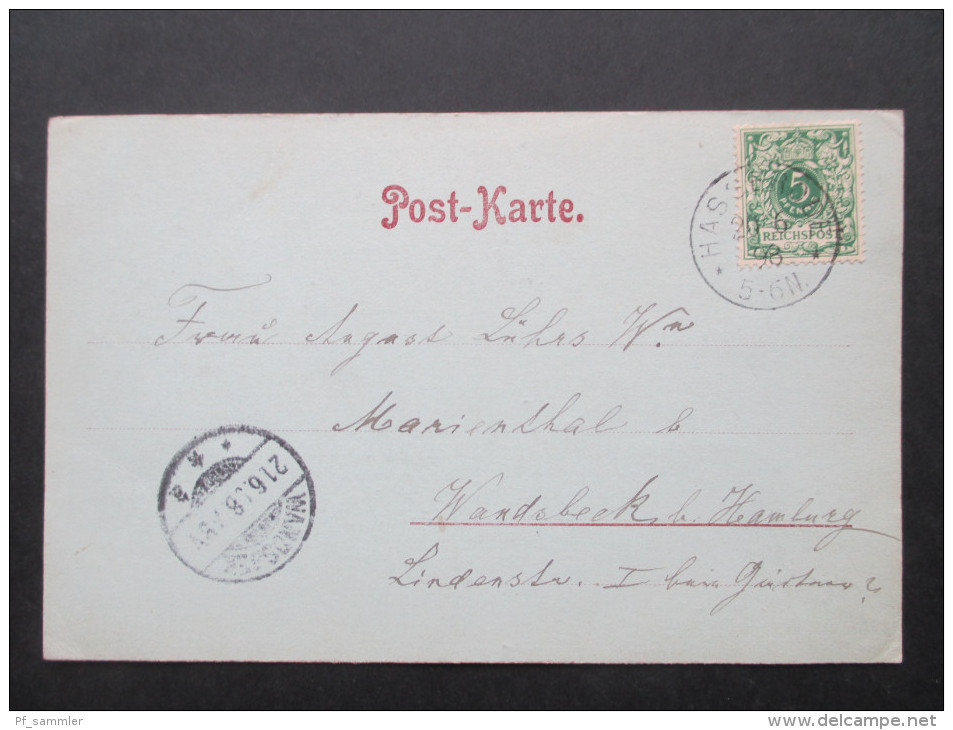 Post-Karte.
5
REICHSPOST
HASS
20 6
98
5-6N.
Frau August Lührs Wn
Marienthal b
Wandsbeck b. Hamburg
Lindenstr. I beim Gärtner
21.6.98
WANDSBEK
a
Pf_sammler
http://www.delcampe.net